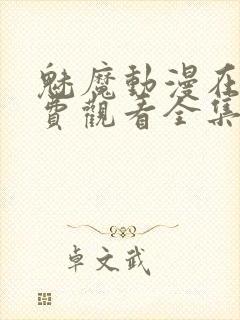 魅魔動漫在
費觀看全集
卓文武